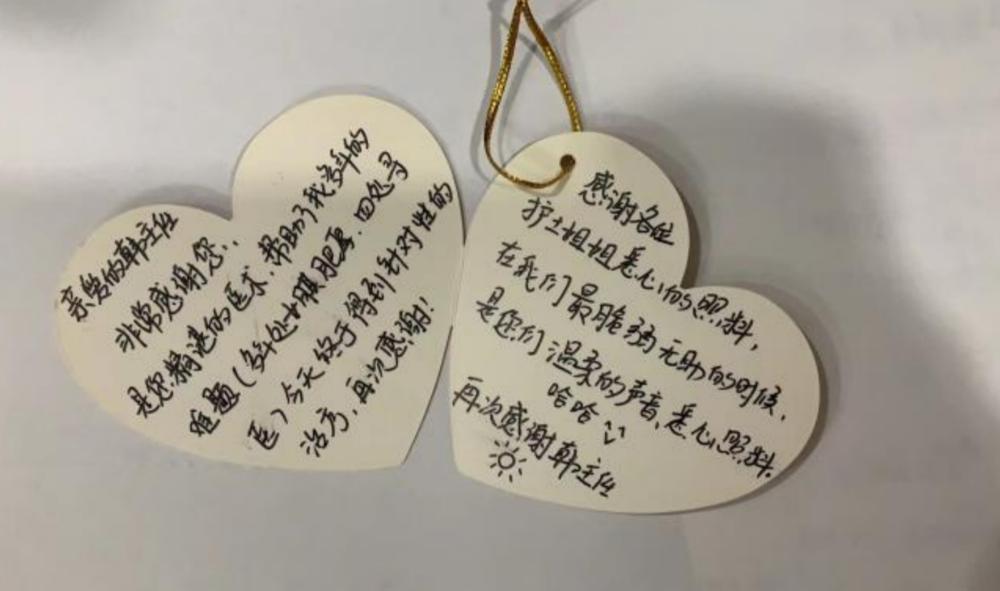 亲爱的韩主任
非常感谢您..
是您精湛的医术,帮助了我多年的
难题(多年处处,四处寻
医)今天终于得到针对性的
治疗,再次感谢!
感谢各位
护士姐姐悉心的照料,
在我们最脆弱无助的时候,
是您们温柔的声音,悉心照料.
哈哈
再次感谢韩主任